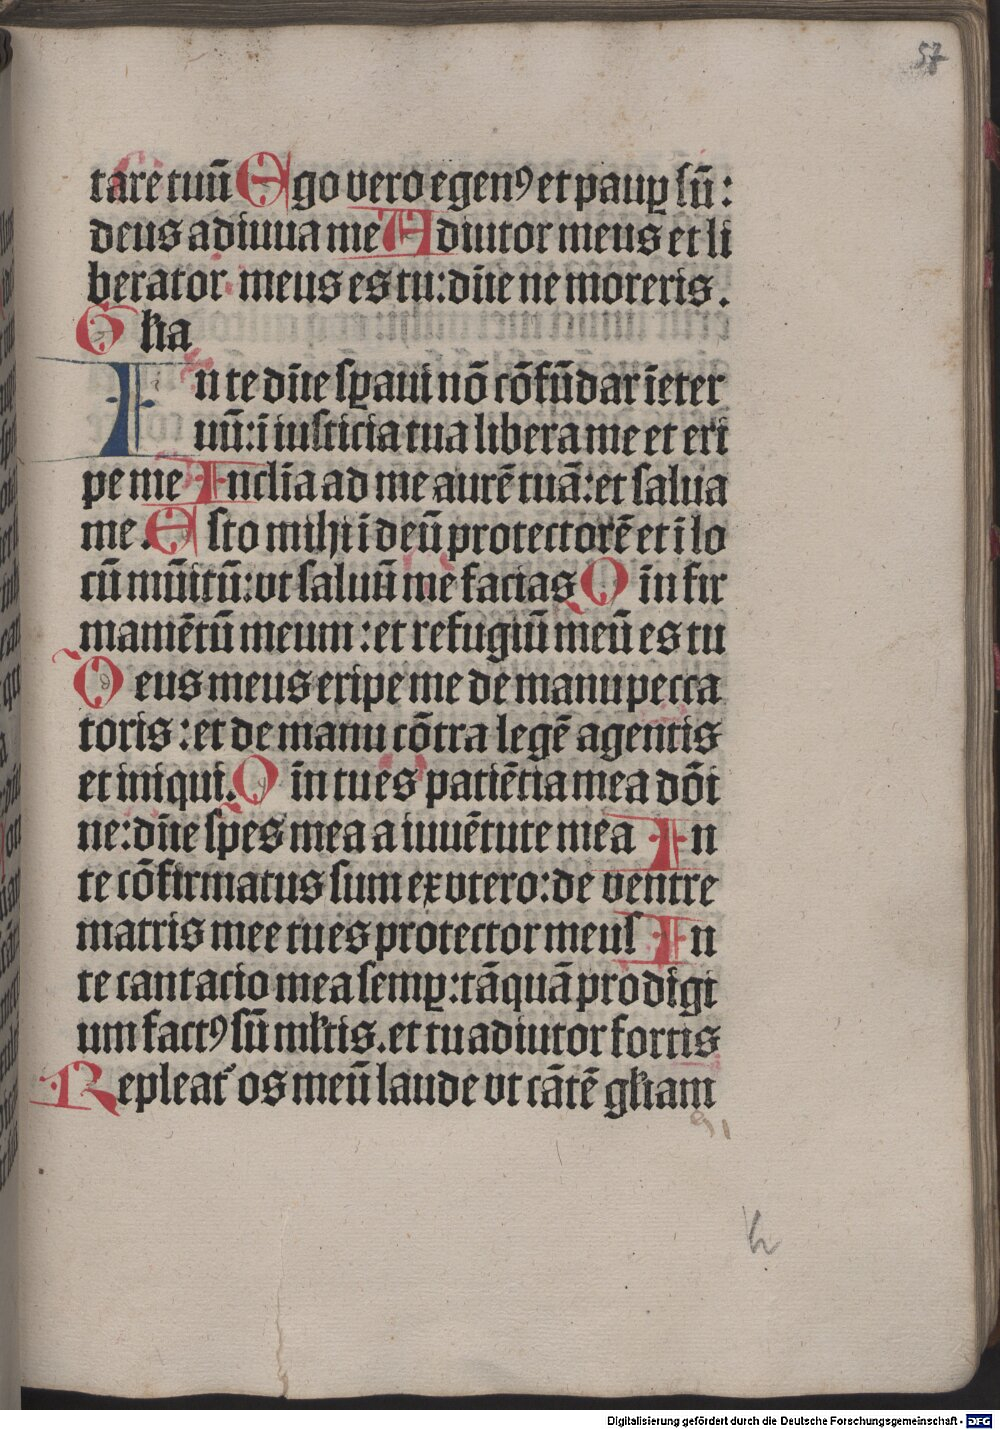 57
tare tuū Ego vero egenꝰ et paup̲ sū:
deus adiuua me Adiutor meus et li
berator meus es tu: dn̄e ne moreris.
Gl̄ia
In te dn̄e sp̲aui nō cōfūdar īeter
nū: ī iusticia tua libera me et eri
pe me Inclīa ad me aurē tuā: et salua
me. Esto mihi ī deū protectorē et ī lo
cū mūitū: vt saluū me facias Qm̄ fir
mamētū meum: et refugiū meū es tu
Deus meus eripe me de manu pecca
toris: et de manu cōtra legē agentis
et iniqui. Qm̄ tu es patiētia mea dōi
ne: dn̄e sp̄es mea a iuuētute mea In
te cōfirmatus sum ex vtero: de ventre
matris mee tu es protector meus In
te cantacio mea semp̲: tāquā prodigi
um factꝰ sū ml̄tis. et tu adiutor fortis
Repleat᷑ os meū laude vt cātē gl̄iam
h
Digitalisierung gefördert durch die Deutsche Forschungsgemeinschaft - DFG